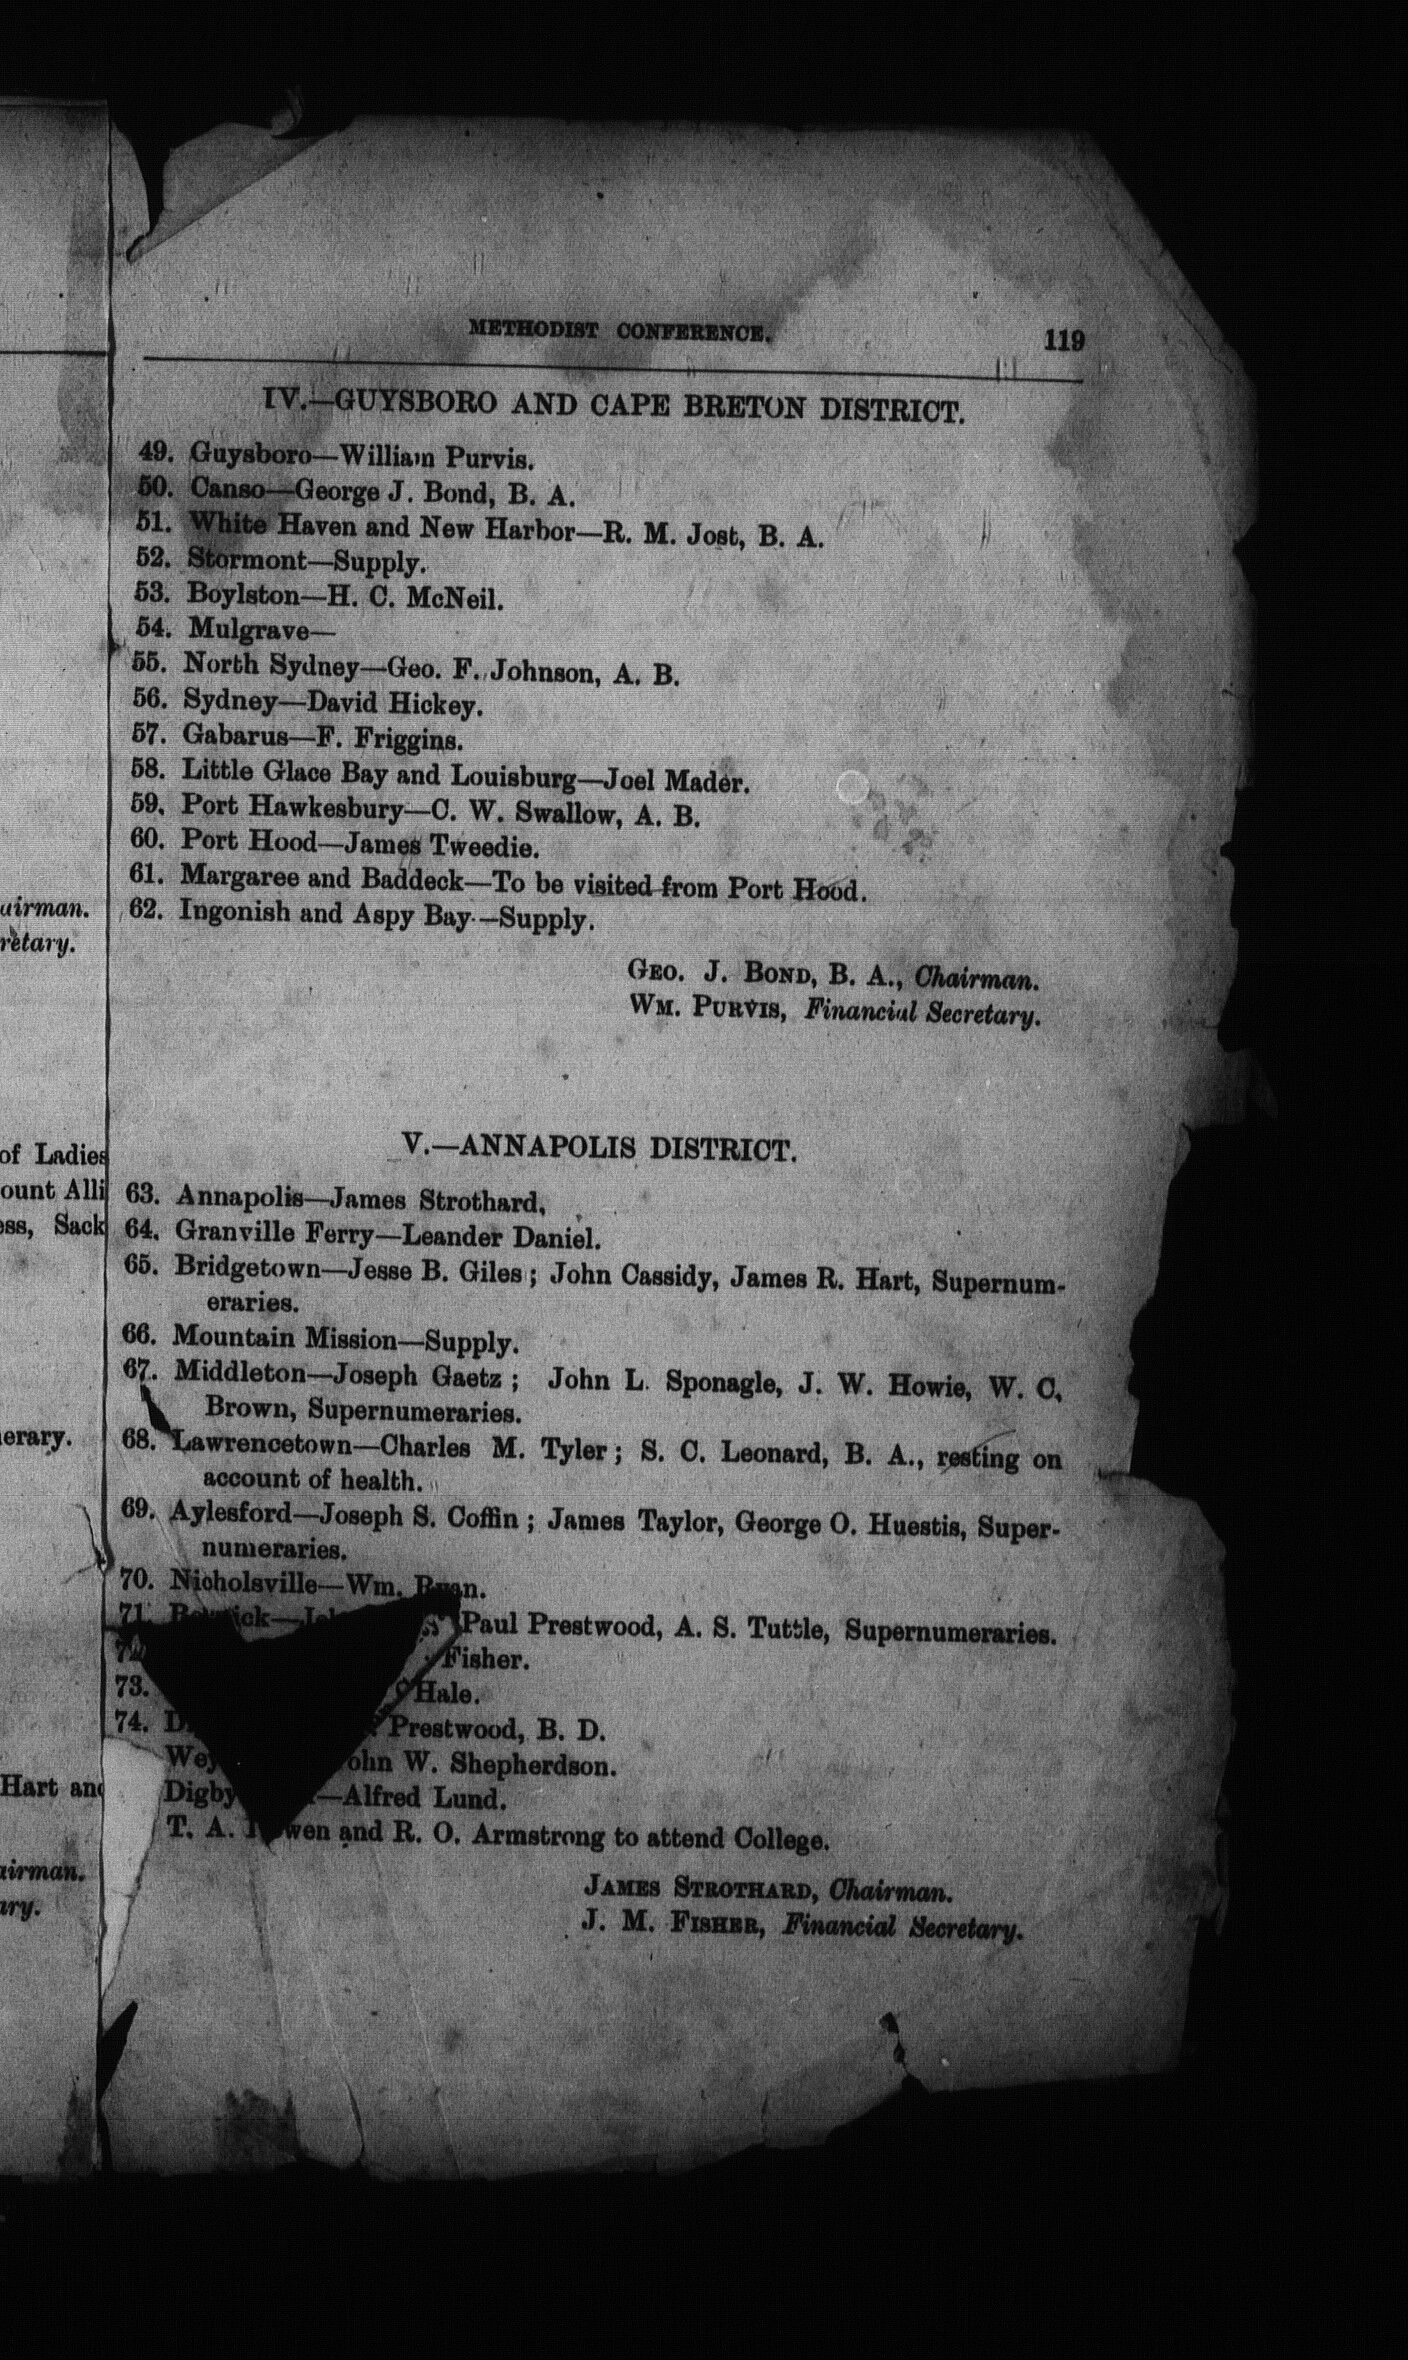 METHODIST CONFERENCE. 119
IV.—GUYSBORO AND CAPE BRETON DISTRICT.
49. Guysboro—William Purvis.
50. Canso—George J. Bond, B. A.
51. White Haven and New Harbor—R. M. Jost, B. A.
52. Stormont—Supply.
53. Boylston—H. C. McNeil.
54. Mulgrave—
55. North Sydney—Geo. F. Johnson, A. B.
56. Sydney—David Hickey.
57. Gabarus—F. Friggins.
58. Little Glace Bay and Louisburg—Joel Mader.
59. Port Hawkesbury—C. W. Swallow, A. B.
60. Port Hood—James Tweedie.
61. Margaree and Baddeck—To be visited from Port Hood.
62. Ingonish and Aspy Bay—Supply.
GEO. J. BOND, B. A., Chairman.
WM. PURVIS, Financial Secretary.
V.—ANNAPOLIS DISTRICT.
63. Annapolis—James Strothard,
64. Granville Ferry—Leander Daniel.
65. Bridgetown—Jesse B. Giles; John Cassidy, James R. Hart, Supernum-
eraries.
66. Mountain Mission—Supply.
67. Middleton—Joseph Gaetz; John L. Sponagle, J. W. Howie, W. C,
Brown, Supernumeraries.
68. Lawrencetown—Charles M. Tyler; S. C. Leonard, B. A., resting on
account of health.
69. Aylesford—Joseph S. Coffin; James Taylor, George O. Huestis, Super-
numeraries.
70. Nicholsville—Wm. Ryan.
71. Paul Prestwood, A. S. Tuttle, Supernumeraries.
72. Fisher.
73. Hale.
74. Prestwood, B. D.
John W. Shepherdson.
Digby —Alfred Lund.
T. A. and R. O. Armstrong to attend College.
JAMES STROTHARD, Chairman.
J. M. FISHER, Financial Secretary.